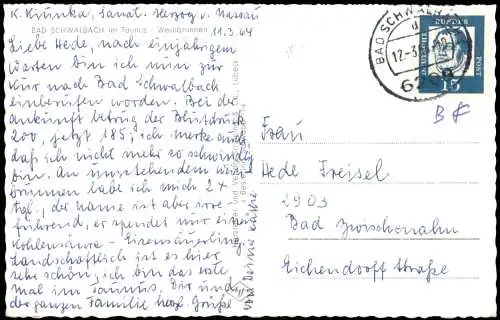 K. Kiunka, Sanat. Herzog v. Nassau
BAD SCHWALBACH im Taunus - Weinbrunnen 11.3.64
Liebe Hede, nach einjährigem
Warten bin ich nun zur
Kur nach Bad Schwalbach
einberufen worden. Bei der
Ankunft betrug der Blutdruck
200, jetzt 185, ich merke auch
daß ich nicht mehr so schwindlig
bin. An umstehendem Wein
brunnen labe ich mich 2 x
tgl., der Name ist aber irre-
führend, er spendet nur eine
Kohlensäure - Eisensäuerling.
Landschaftlich ist es hier
sehr schön, ich bin das erste
Mal im Taunus. Dir und
der ganzen Familie herzl. Grüße
von Deiner
BAD SCHWALBACH
12.-3.
6208
DEUTSCHE
POST
15
Frau
Hede Freisel
2903
Bad Zwischenahn
Eichendorff Straße